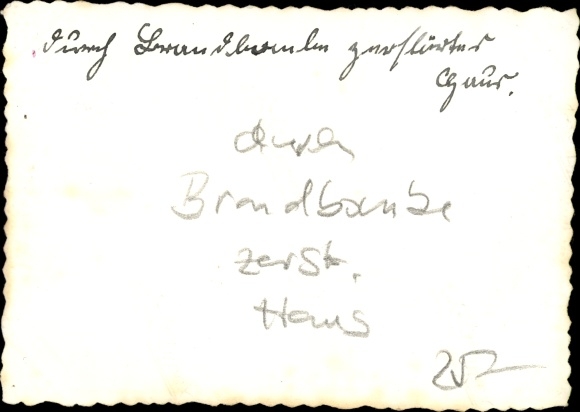 durch Brandbombe zerstörtes
Haus.
durch
Brandbombe
zerst.
Haus
25,-